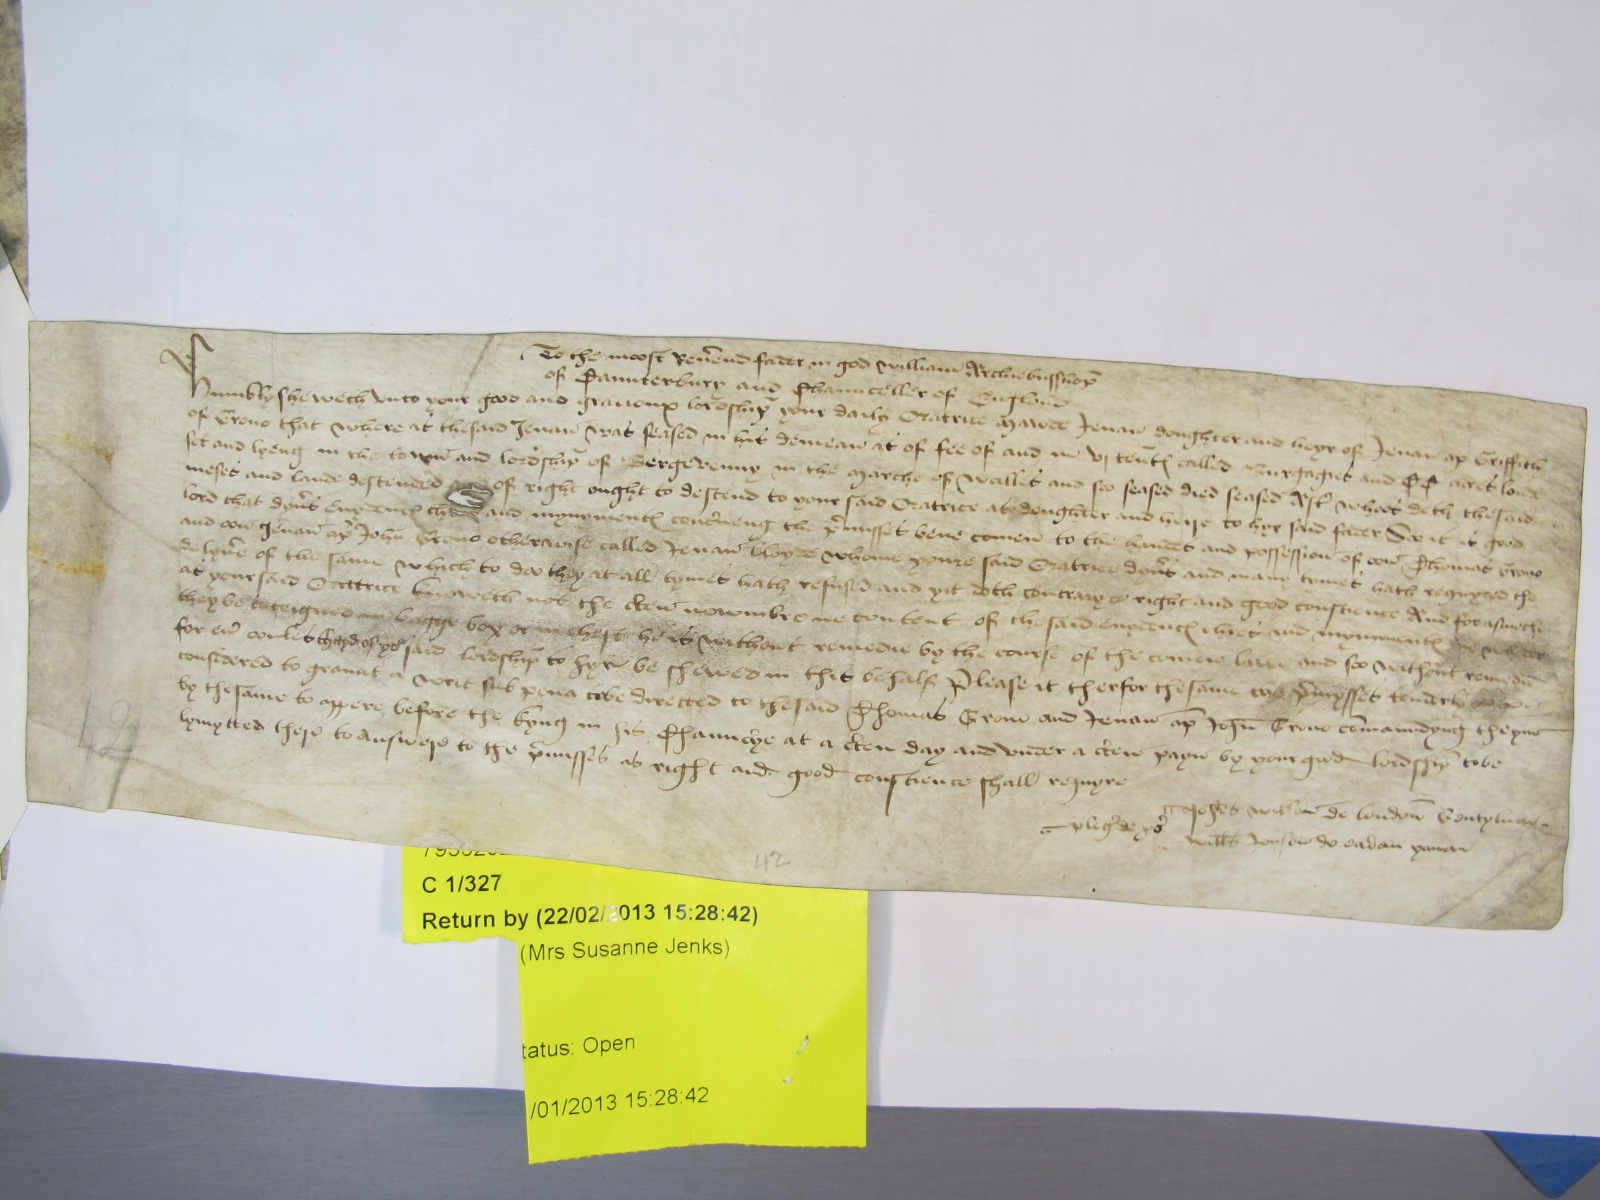 To the moost Reuerend fader in god william Archiebusshop
of Caunterbury and Chaunceller of England
Humbly sheweth vnto your good and gracious lordship your daily Oratrice Mawde Jeuan doughter and heyr of Jeuan ap Griffith
of Grono that where as thesaid Jeuan was seased in his demean as of fee of and in vj tents called Burgages and acres lond
set and lyeng in the town and lordship of Bergevenny in the Marche of Walles and soo seased died seased Aft whoos deth thesaid
meses and lande descended of right ought to descend to your said Oratrice as doughter and heire to hyr said fader So it is good
lord that dyuers euydences and mynymentes concerneng the premisses bene comen to the handes and possession of oon Thomas Grono
and oon Jeuan ap John Grono otherwise called Jeuan lloyd whome youre said Oratrice dyuers and many tymes hath requyred the
delyuere of the same which to doo they at all tymes hath refused and yit doth contrary to right and good conscience And for asmoche
as your said Oratrice knoweth not the certen nowmbre ne content of thesaid euydences and mynymentes whedir
they be conteigned in bagge box or in chest he is without remedie by the course of the comen lawe and soo without remedie
for euer oonles your said lordship to hyr be shewed in this behalf Please it therfor thesame the premysses tenderly
considered to graunt a writ sub pena to be directed to thesaid Thomas Grono and Jeuan ap John Grono commaundyng theym
by thesame to appere before the kyng in his Chauncrye at a certen day and vnder a certen payn by your good lordship to be
lymytted there to answere to the premisses as right and good conscience shall requyre
pleg de pros Johes Wilson de london Gentylman
Wills de eadem yoman
42
42
C 1/327
Return by (22/02/2013 15:28:42)
(Mrs Susanne Jenks)
tatus: Open
/01/2013 15:28:42